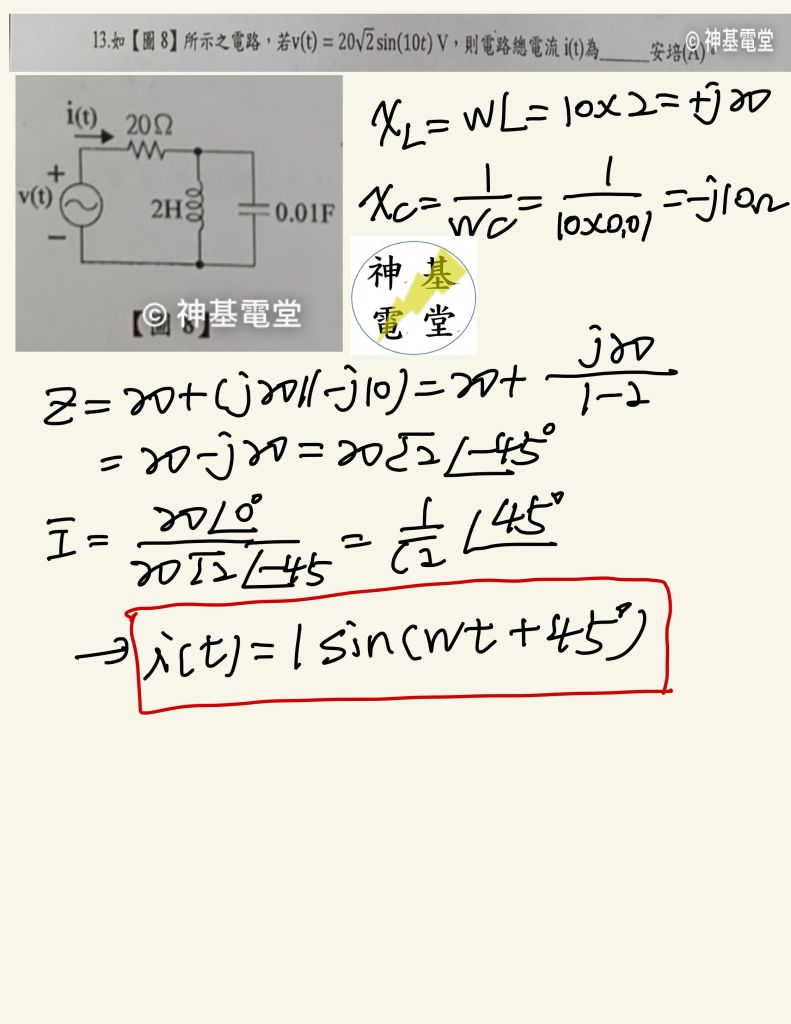 13.如【圖 8】所示之電路，若v(t) = 20√2 sin(10t) V，則電路總電流 i(t)為______安培(A)。
© 神基電堂
i(t)
20Ω
+
v(t)
−
2H
0.01F
【圖 8】
© 神基電堂
X_L = WL = 10×2 = +j20
X_C = 1/WC = 1/(10×0.01) = -j10Ω
神 基
電 堂
Z = 20+(j20//-j10) = 20+ j20/(1-2)
= 20-j20 = 20√2∠-45°
I̅ = 20∠0°/(20√2∠-45) = 1/√2 ∠45°
→ i(t) = 1 sin(wt+45°)